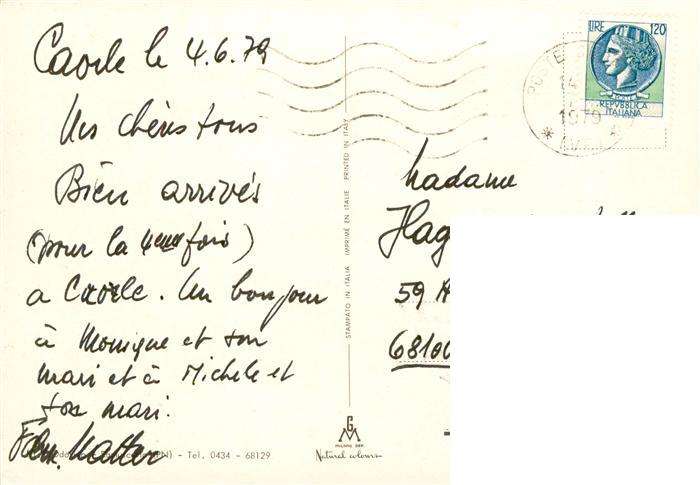 Caorle le 4.6.79
Mes chéris tous
Bien arrivés
(pour la 4eme fois)
a Caorle. Un bonjour
à Monique et son
mari et à Michele et
son mari.
Fam.
PN) - Tel. 0434 - 68129
STAMPATO IN ITALIA IMPRIMÉ EN ITALIE PRINTED IN ITALY
GM
Natural colours
LIRE 120
REPVBBLICA
ITALIANA
POSTE
1979
Madame
Hag
59
68100